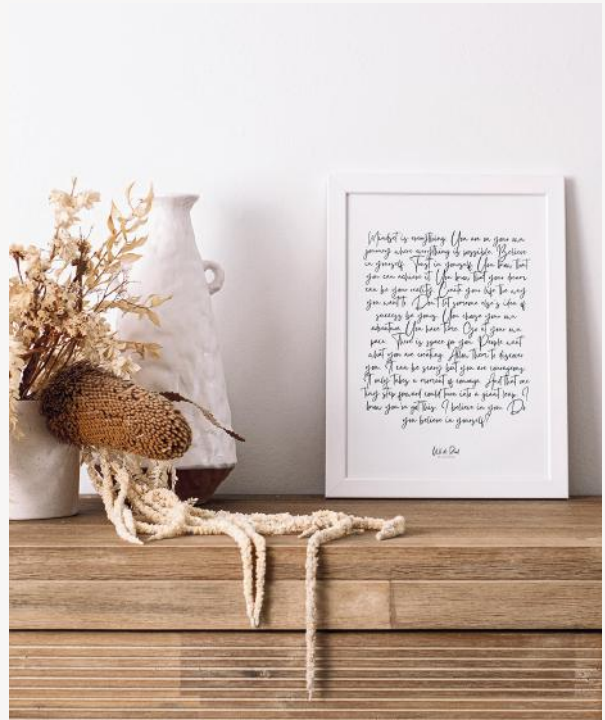 Mindset is everything. You are on your own
journey where everything is possible. Believe
in yourself. Trust in yourself. You know that
you can achieve it. You know that your dreams
can be your reality. Create your life the way
you want to. Don't let someone else's idea of
success be yours. You chose your own
adventure. You have time. Go at your own
pace. There is space for you. People want
what you are creating. Allow them to discover
you. It can be scary but you are courageous.
It only takes a moment of courage. And that one
tiny step forward could turn into a giant leap. I
know you've got this. I believe in you. Do
you believe in yourself?